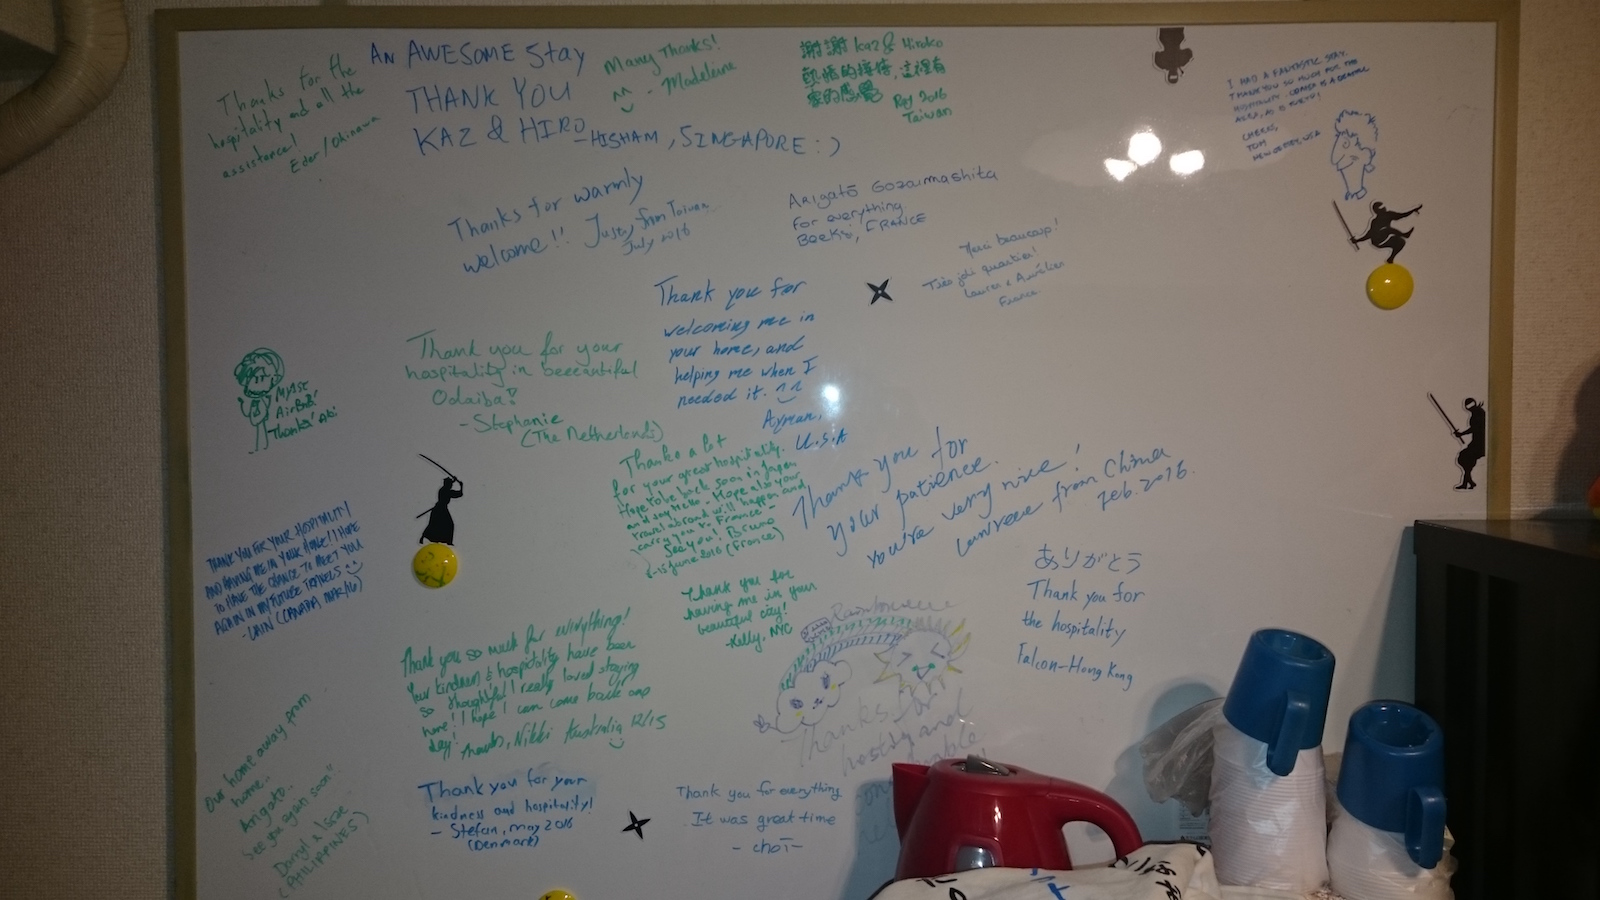 Thanks for the
hospitality and all the
assistance!
Eder/Okinawa
AN AWESOME Stay
THANK YOU
KAZ & HIRO
- HISHAM, SINGAPORE :)
Many Thanks!
- Madeleine
謝謝 kaz & Hiroko
熱情的接待, 這裡有
家的感覺
Roy 2016
Taiwan
I HAD A FANTASTIC STAY.
THANK YOU SO MUCH FOR THE
HOSPITALITY.
CHEERS,
TOM
Thanks for warmly
welcome!!
from Taiwan
July 2016
ARIGATŌ GOZAIMASHITA
For everything
FRANCE
Merci beaucoup!
Très joli quartier!
Laura & Aurélien
France
Thank you for
welcoming me in
your home, and
helping me when I
needed it. ^^
Ayman,
U.S.A
Thank you for your
hospitality in beeeautiful
Odaiba!
- Stephanie
(The Netherlands)
My 1st
AirBnB!
Thanks! Abi
Thanks a lot
for your great hospitality.
Hope to be back soon in Japan
and say Hello. Hope also your
travel abroad will happen and
carry you to France -
See you! Bruno
8-15 June 2016 (France)
Thank you for
your patience.
You're very nice!
from China
Feb. 2016
THANK YOU FOR YOUR HOSPITALITY
AND HAVING ME IN YOUR HOME!! I HOPE
TO HAVE THE CHANCE TO MEET YOU
AGAIN IN MY FUTURE TRAVELS
(CANADA) MAR/16)
Thank you for
having me in your
beautiful city!
- Kelly, NYC
ありがとう
Thank you for
the hospitality
Falcon-Hong Kong
Thank you so much for everything!
Your kindness & hospitality have been
so thoughtful. I really loved staying
here! I hope I can come back one
day!
Thanks, Nikki Australia 12/15
Thanks for
hosting and
Our home away from
home..
Arigato..
See you again soon"
Darryl & Isae
(PHILIPPINES)
Thank you for your
kindness and hospitality!
- Stefan, may 2016
(Denmark)
Thank you for everything
It was great time
- choi -